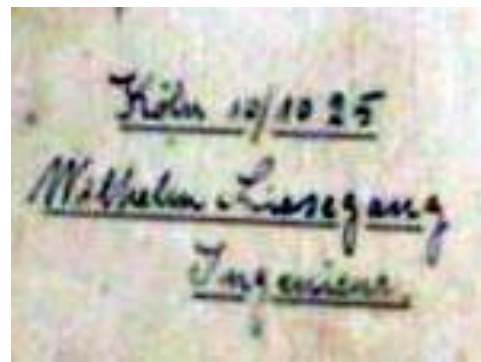 Köln 10/10 25
Wilhelm Liesegang
Ingenieur.